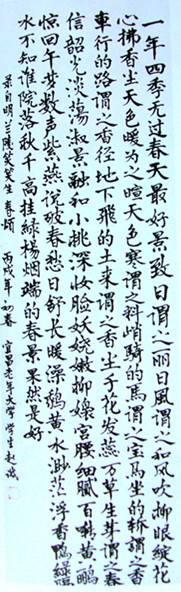 一年四季无过春天最好景致日谓之丽日风谓之和风吹柳眼绽花
心拂香尘天色暖为之暄天色寒谓之料峭骑的馬谓之宝马坐的轿谓之香
車行的路谓之香径地下飛的土来谓之香尘千花发蕊万草生芽谓之春
信韶光淡荡淑景融和小桃深妆脸妖娆嫩柳嬝宫腰细腻百啭黄鹂
惊回午梦数声紫燕说破春愁日舒长暖澡鹅黄水渺茫浮香鸭綠隔
水不知谁院落秋千高挂綠楊烟端的春景果然是好
录自明兰陵笑笑生春頌 丙戌年初春 宜昌老年大学学生赵